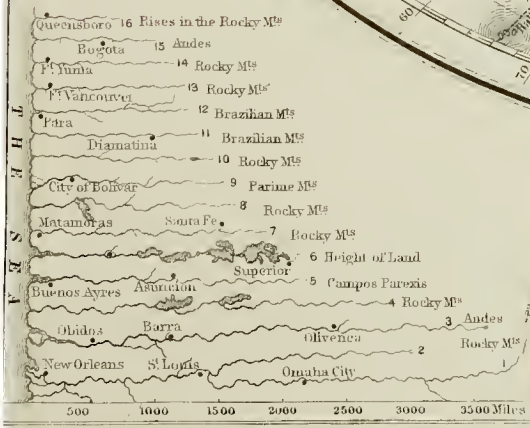 Queensboro 16 Rises in the Rocky Mts
Bogota 15 Andes
Ft. Yuma 14 Rocky Mts
Ft. Vancouver 13 Rocky Mts
Para 12 Brazilian Mts
Diamatina 11 Brazilian Mts
10 Rocky Mts
City of Bolivar 9 Parime Mts
8 Rocky Mts
Matamoras Santa Fe 7 Rocky Mts
6 Height of Land
Superior
Buenos Ayres Asuncion 5 Campos Parexis
4 Rocky Mts
Obidos Barra Olivenca 3 Andes
Rocky Mts
2
New Orleans St. Louis Omaha City 1
500 1000 1500 2000 2500 3000 3500 Miles
THE SEA
60
70